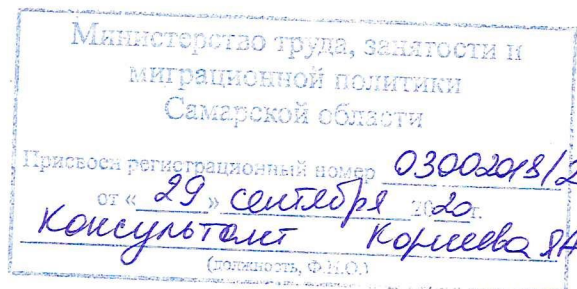 Министерство труда, занятости и
миграционной политики
Самарской области
Присвоен регистрационный номер 03002018/2
от « 29 » сентября 2020 г.
Консультант
(должность, Ф.И.О.)